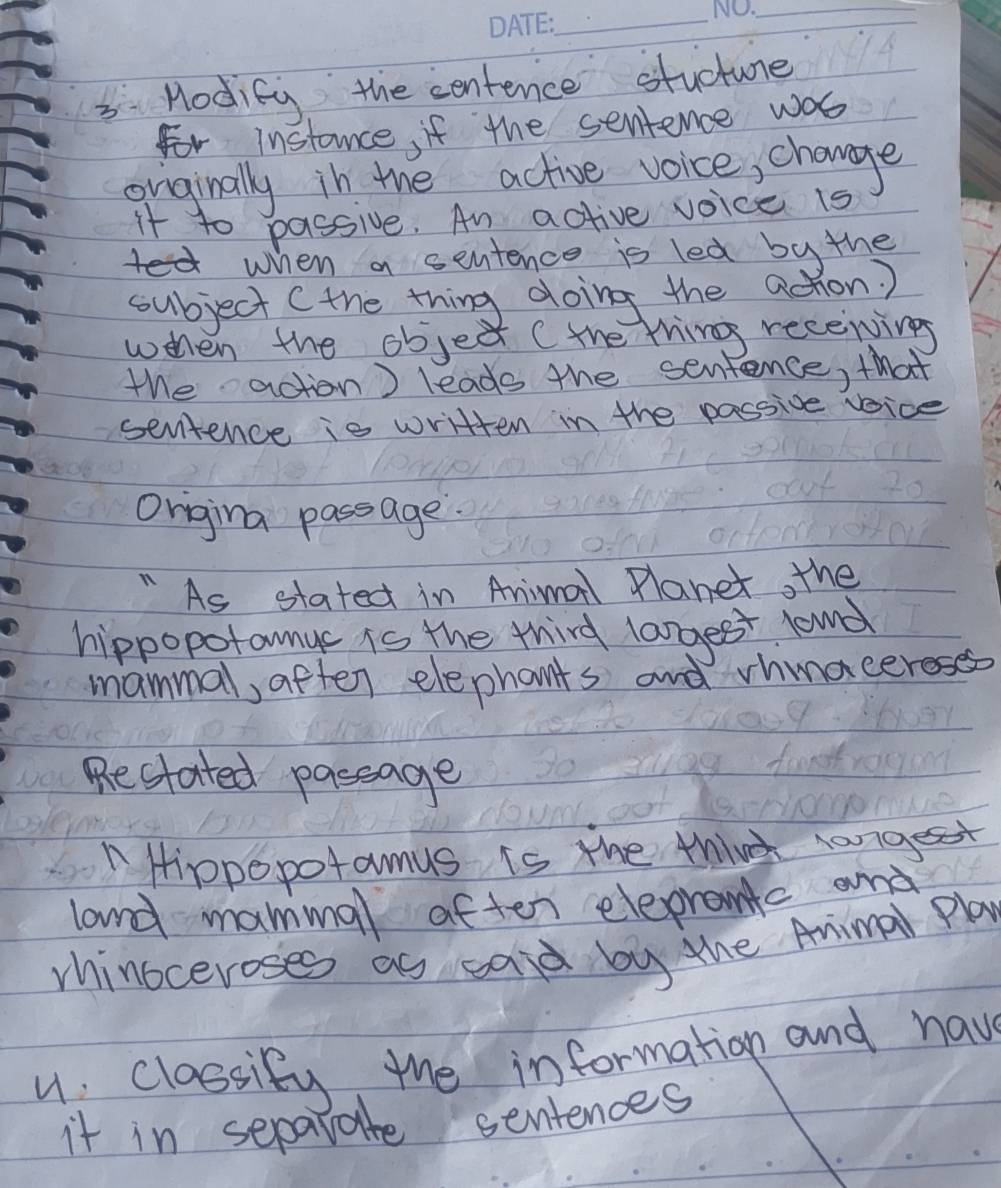 DATE: NO.
3. Modify the sentence stucture
For instance, if the sentence was
originally in the active voice, change
it to passive. An active voice is
ted when a sentence is led by the
subject (the thing doing the action.)
when the object (the thing receiving
the action) leads the sentence, that
sentence is written in the passive voice
Origina passage.
" As stated in Animal Planet, the
hippopotamus is the third largest land
mammal, after elephants and rhinaceroses
Restated passage
" Hippopotamus is the third largest
land mammal after elephants and
rhinoceroses as said by the Animal Plan
4. Classify the information and have
it in separate sentences